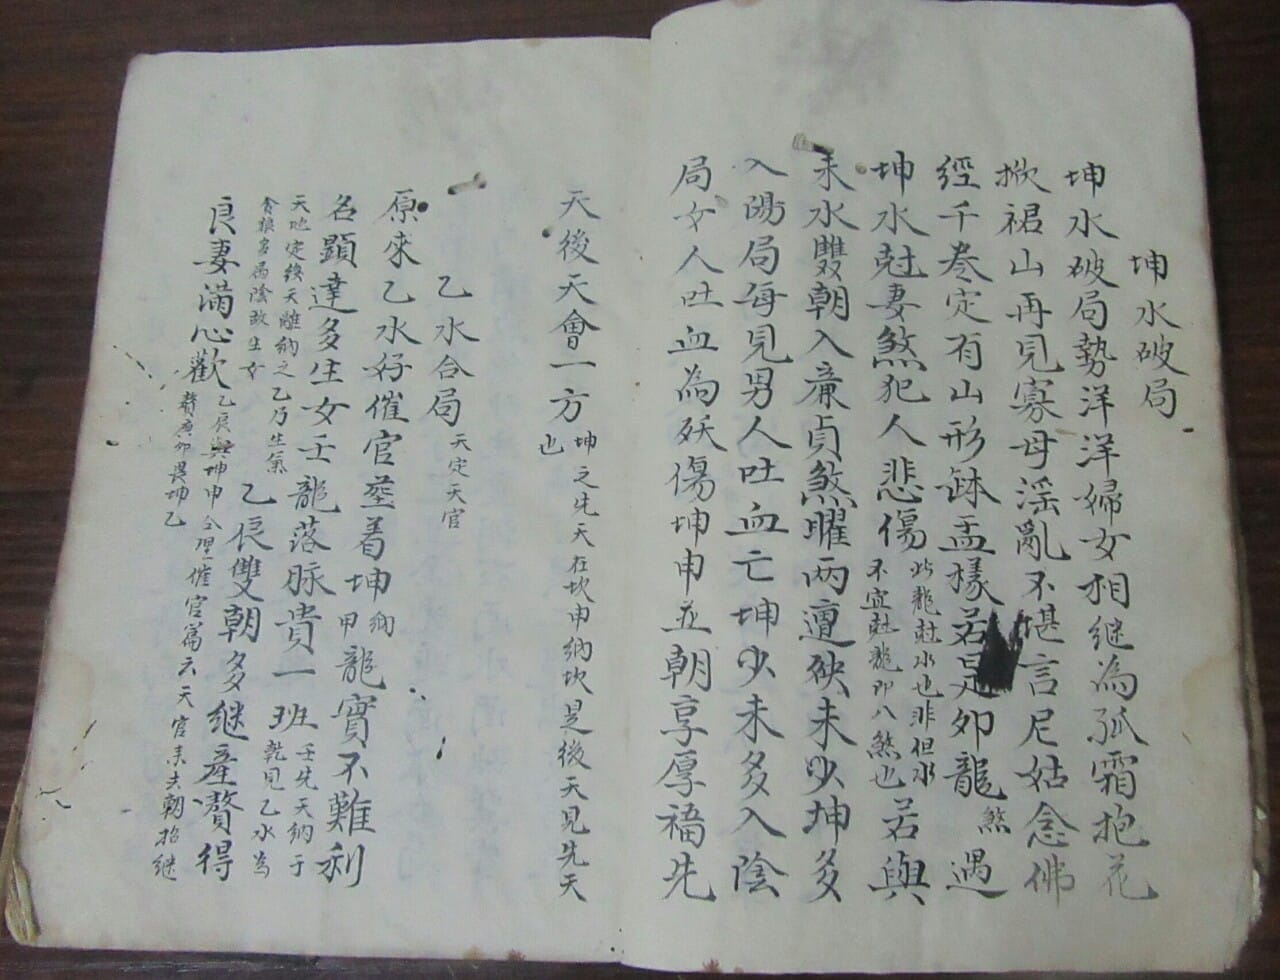 坤水破局
坤水破局勢洋洋婦女相継為孤霜抱花
掀裙山再見寡母淫亂不堪言尼姑念佛
經千卷定有山形缽盂樣若是卯龍煞遇
坤水尅妻煞犯人悲傷此龍尅水也非但水不宜尅龍卽八煞也若與
未水雙朝入亷貞煞曜两邅殃未少坤多
入陽局每見男人吐血亡坤少未多入陰
局女人吐血為殀傷坤申並朝享厚福先
天後天會一方坤之先天在坎申納坎是後天見先天也
乙水合局天定天官
原來乙水好催官塟着坤納甲龍實不難利
名顯達多生女壬龍落脉貴一班壬先天納于乾見乙水為
天地定後天離納之乙乃生氣貪狼多為陰故生女乙辰雙朝多継產贅得
良妻滿心歡乙辰與坤申仝理催官篇云天官未夫朝招継贅庚卯畏坤乙